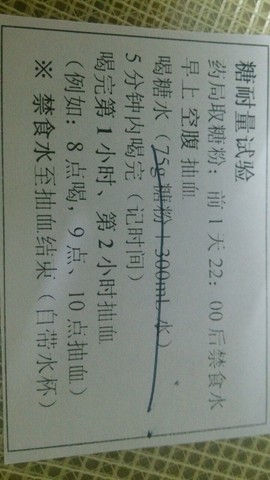 糖耐量试验
药局取糖粉：前1天22：00后禁食水
早上空腹抽血
喝糖水（75g糖粉+300mL水）
5分钟内喝完（记时间）
喝完第1小时、第2小时抽血
（例如：8点喝，9点、10点抽血）
※ 禁食水至抽血结束（自带水杯）